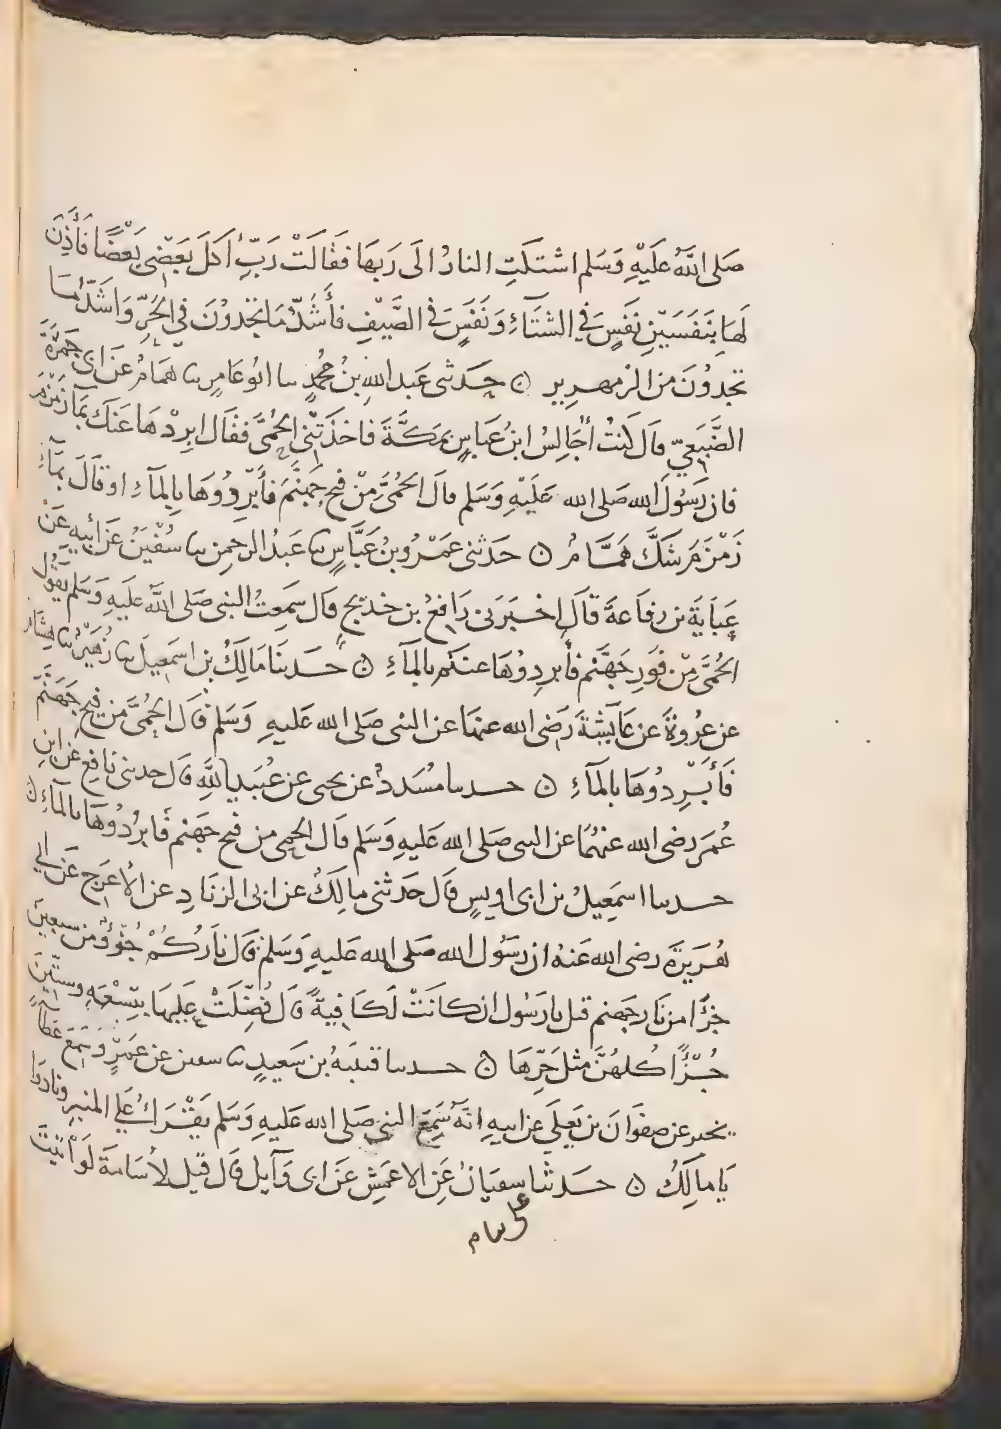 صَلى اللَّهُ عَلَيْهِ وَسَلم اشتَكَتِ النارُ الَى رَبهَا فَقَالَتْ رَبِّ أكَلَ بَعْضِى بَعْضًا فَأَذِنَ
لَهَا بِنَفَسَيْنِ نَفَسٍ في الشتَآءِ وَنَفَسٍ فى الصَّيْفِ فأَشُدُّ مَا تجدُونَ فِي الحَرِّ وَاشَدُّ مَا
تجدُونَ من الزمهرير ۞ حَدثنى عَبد الله بنُ مُحَمدٍ سا ابُو عَامرٍ سا همَامُ عَن ابى جَمْرَةَ
الضُّبَعِيّ قال كنتُ أُجَالِسُ ابنَ عبَاسٍ بمَكَّةَ فاخذَتْنِى الحُمَّى فقال ابرِدْهَا عَنكَ بمَآءِ زَمْزَمَ
فان رَسُولَ الله صَلى الله عَلَيْهِ وَسَلم قال الحُمَّى مِنْ فيحِ جَهنَّمَ فَأَبرِدُوهَا بِالمَآءِ او قَالَ بمَآءِ
زَمْزَمَ شَكَّ هَمَّامُ ۞ حَدثنى عَمْرُو بنُ عَبَّاسٍ سا عَبدُ الرحمن سا سُفْيَنُ عَن أبيهِ عَنْ
عَبَايَةَ بن رفاعَةَ قَالَ اخبَرَنى رَافعُ بن خديجٍ قال سَمِعتُ النبى صَلى اللَّه عَلَيهِ وَسَلم يَقُولُ
الحُمَّى مِنْ فَورِ جَهَنم فأبردُوهَا عنكم بالمَآءِ ۞ حَدثنَا مَالِكُ بن اسمَعِيلَ سا زُهَيْرُ سا هِشَام
عن عروَةَ عن عَايشَةَ رَضى الله عنهَا عن النبى صَلى الله عَليهِ وَسَلمْ قال الحُمَّى من فيحِ جَهَنَّمَ
فَأَبْرِدُوهَا بالمَآءِ ۞ حدسا مُسَددُ عن يحيى عن عُبَيدِ اللَّهِ قال حدثنى نَافِع عَن ابنِ
عُمَرَ رضى الله عنهُمَا عن النبى صَلى الله عَليهِ وَسَلم قَال الحمى من فيح جَهَنم فَابرُدُوهَا بالمَآءِ ۞
حدسا اسمَعِيلُ بن ابى اويسٍ قال حَدثنى مالِكُ عن ابى الزنَادِ عن الأعرَجِ عَن ابى
هُرَيرَةَ رضى الله عَنهُ ان رَسُول الله صَلى الله عَليهِ وَسَلمْ قَال نَارُكُمْ جُزْؤٌ من سبعينَ
جُزْأً من نَارِ جَهَنم قيل يا رَسُول ان كانَتْ لَكَافِيةً قَال فُضِّلَتْ عَلَيهَا بِتِسْعَةٍ وَستّينَ
جُزْأً كُلهُنَّ مثلُ حَرِّهَا ۞ حدسا قتيبَةُ بن سَعيدٍ سا سفين عن عَمرٍو سَمِعَ عَطَاءً
يخبر عن صفوَانَ بن يَعلَى عن ابيهِ انَّهُ سَمِعَ النبى صَلى الله عَليهِ وَسَلم يَقْرَأُ عَلَى المنبرِ ونادَوا
يَا مالِكُ ۞ حَدثنا سفيَانُ عَنِ الاعمَشِ عَن ابى وَآيل قَال قيل لأُسَامَةَ لَو أتيتَ